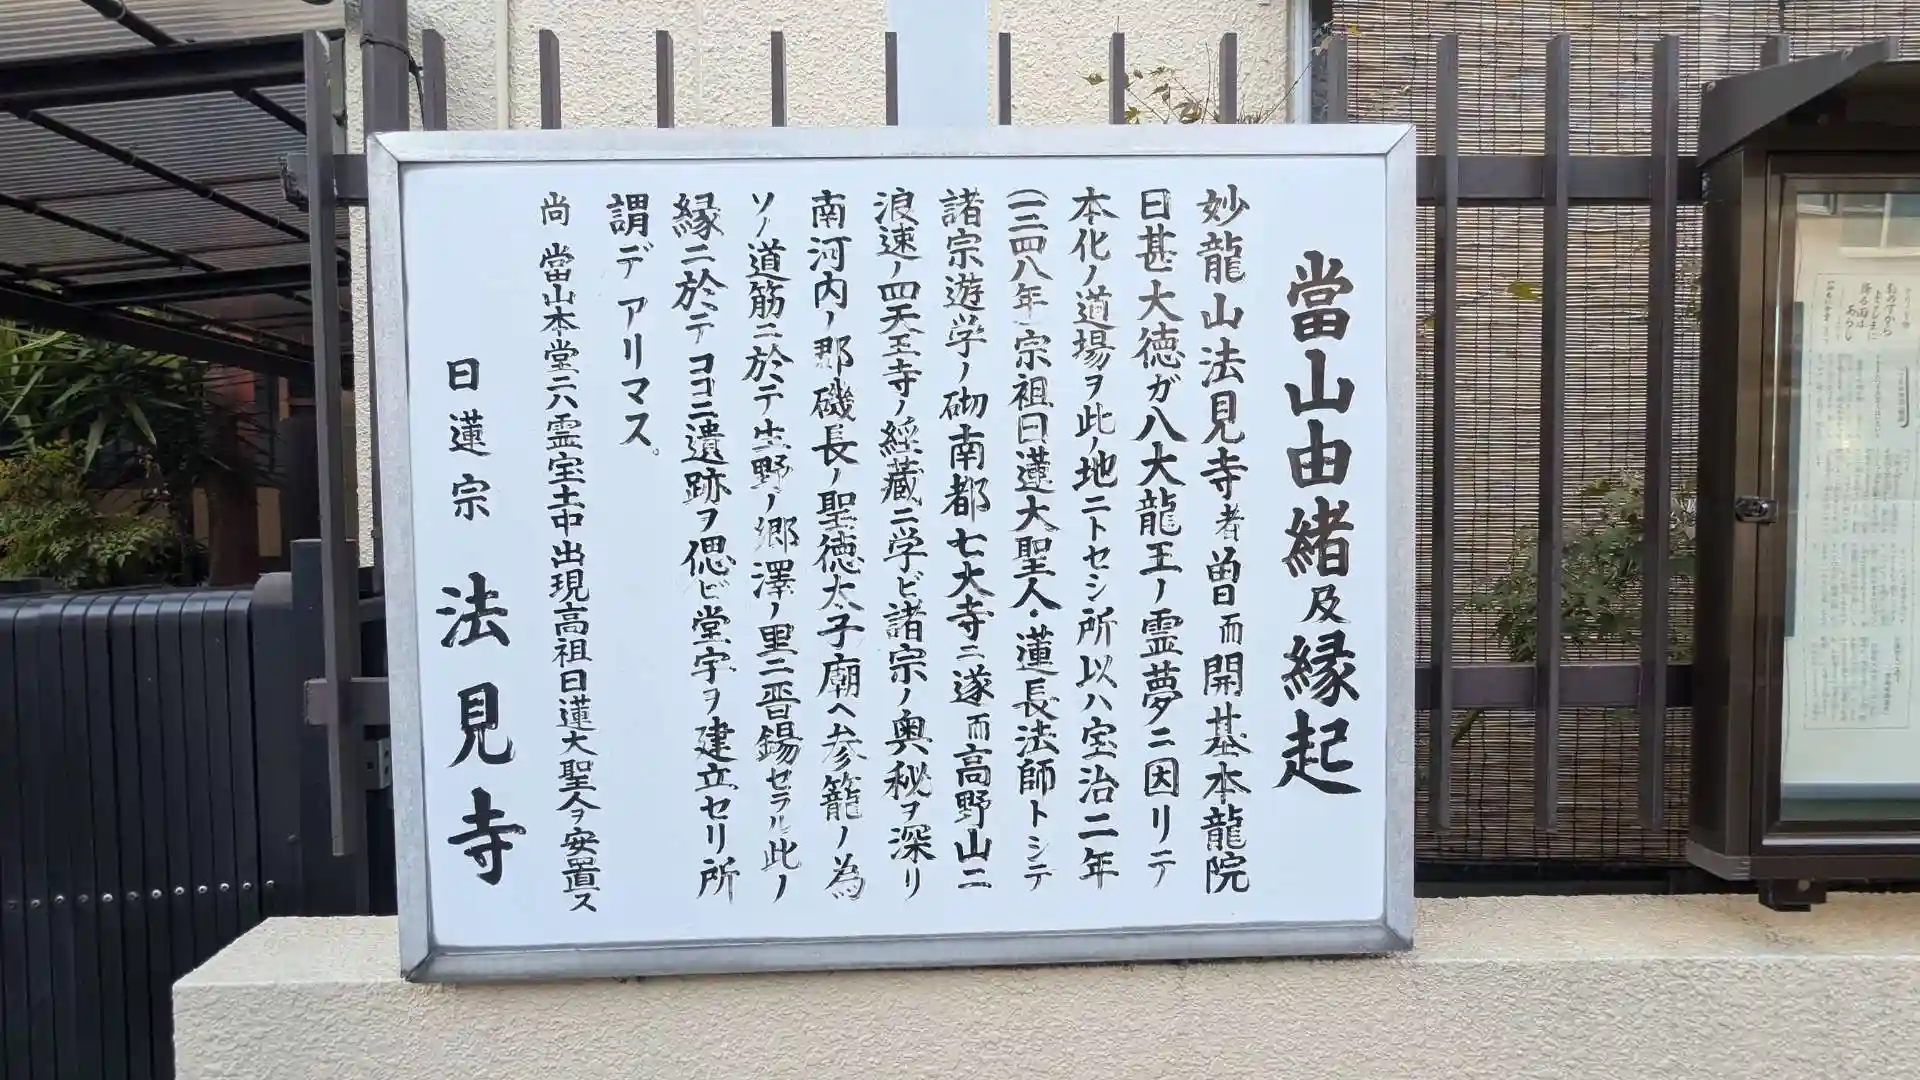 當山由緒及縁起
妙龍山法見寺者曽而開基本龍院
日甚大徳ガ八大龍王ノ霊夢ニ因リテ
本化ノ道場ヲ此ノ地ニトセシ所以ハ宝治二年
(一二四八年)宗祖日蓮大聖人・蓮長法師トシテ
諸宗遊学ノ砌南都七大寺ニ遂而高野山ニ
浪速ノ四天王寺ノ經蔵ニ学ビ諸宗ノ奥秘ヲ深リ
南河内ノ那磯長ノ聖徳太子廟ヘ参籠ノ為
ソノ道筋ニ於テ生野ノ郷澤ノ里ニ晋錫セラル此ノ
縁ニ於テココニ遺跡ヲ偲ビ堂宇ヲ建立セリ所
謂デアリマス。
尚 當山本堂ニハ霊宝土中出現高祖日蓮大聖人ヲ安置ス
日蓮宗 法見寺